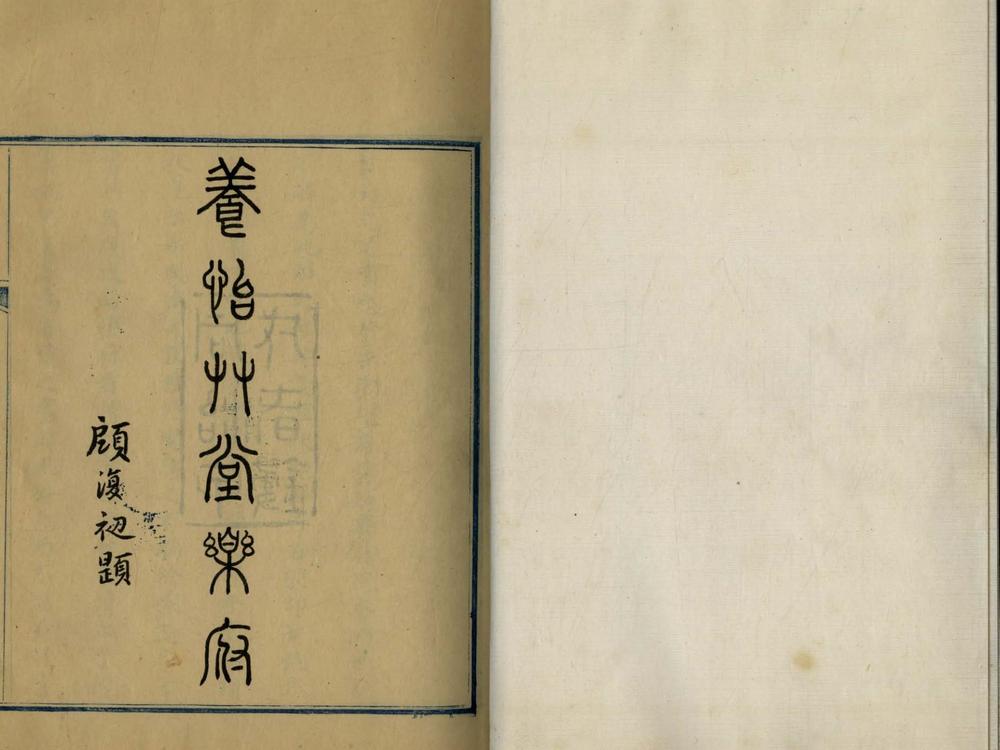 養怡艸堂樂府
顧復初題